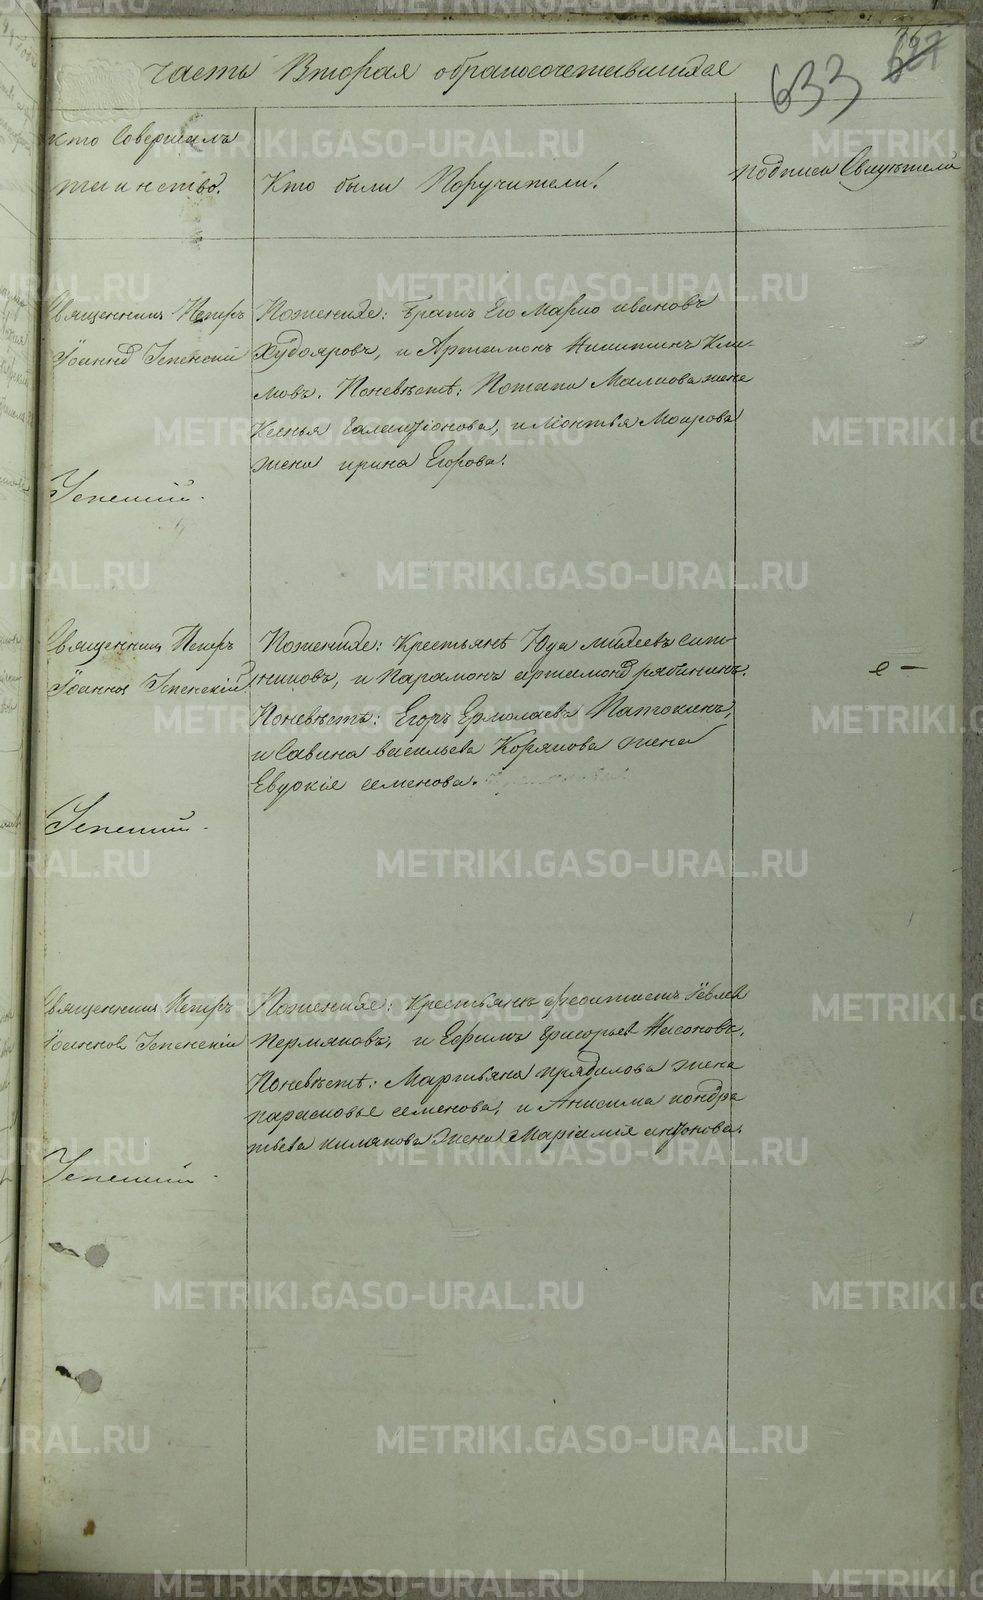 Часть Вторая обракосочетавшихся
633
Кто Совершалъ
таинство.
Кто были Поручители!
подписи Свидетелей
Священникъ Петръ
Іоанновъ Успенскій
Успенский.
Пожениxе: Братъ Его Марко ивановъ
Худояровъ, и Артамонъ Никитинъ Кли-
мовъ. Поневѣстѣ: Потапа Малкова жена
Ксенья Галактіонова, и Мокрова
жена ирина Егорова.
Священникъ Петръ
Іоанновъ Успенскій
Успенский.
Пожениxе: Крестьянѣ Юда Сит-
никовъ, и Парамонъ артамоновъ рябининъ.
Поневѣстѣ: Егоръ Ермолаевъ Патокинъ,
и Савина васильева Корякова жена
Евдокіе семенова.
Священникъ Петръ
Іоанновъ Успенскій
Успенский.
Пожениxе: крестьянъ феоктистъ Іевлевъ
Пермяковъ, и Ефимъ Григорьев Насоновъ,
Поневѣстѣ: Мартьяна прядилова жена
парасковье семенова, и Анисима кондра
тьева жена Маріамія антонова.
METRIKI.GASO-URAL.RU